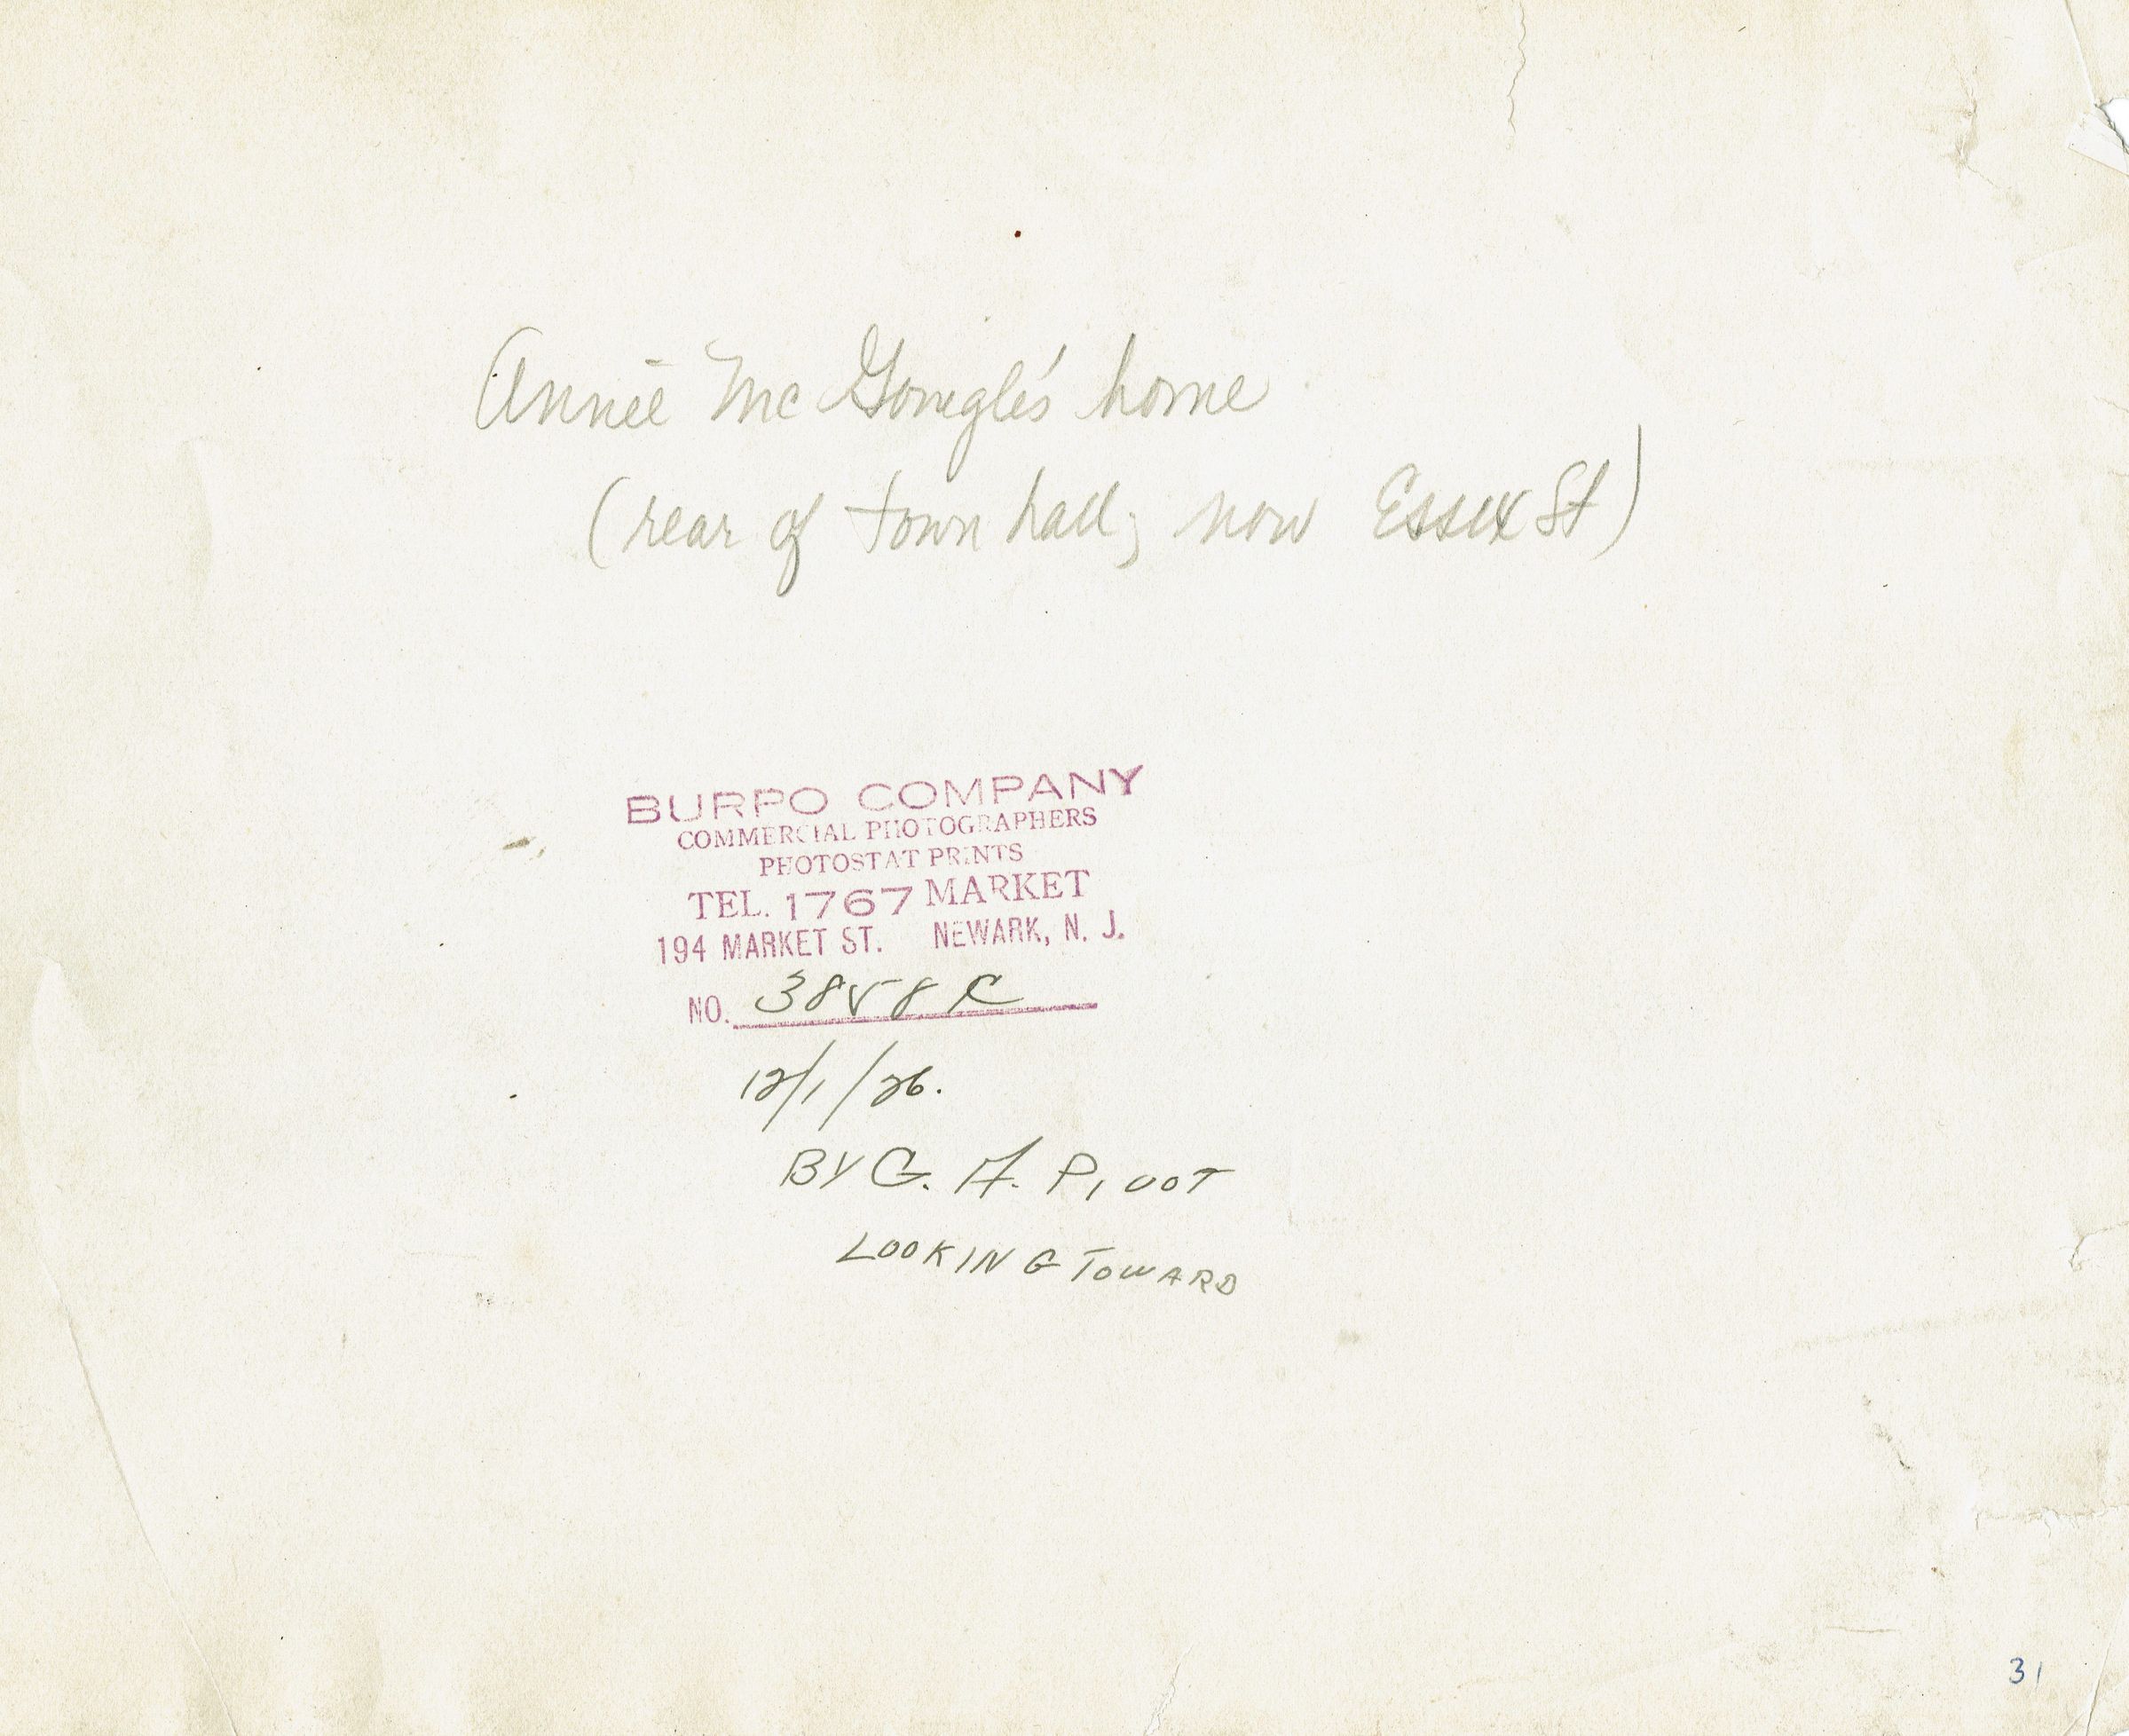 Annie McGonigle's home
(rear of town hall; now Essex St)
BURPO COMPANY
COMMERCIAL PHOTOGRAPHERS
PHOTOSTAT PRINTS
TEL. 1767 MARKET
194 MARKET ST. NEWARK, N. J.
NO. 3858
12/1/26.
BY G. A.
LOOKING TOWARD
31